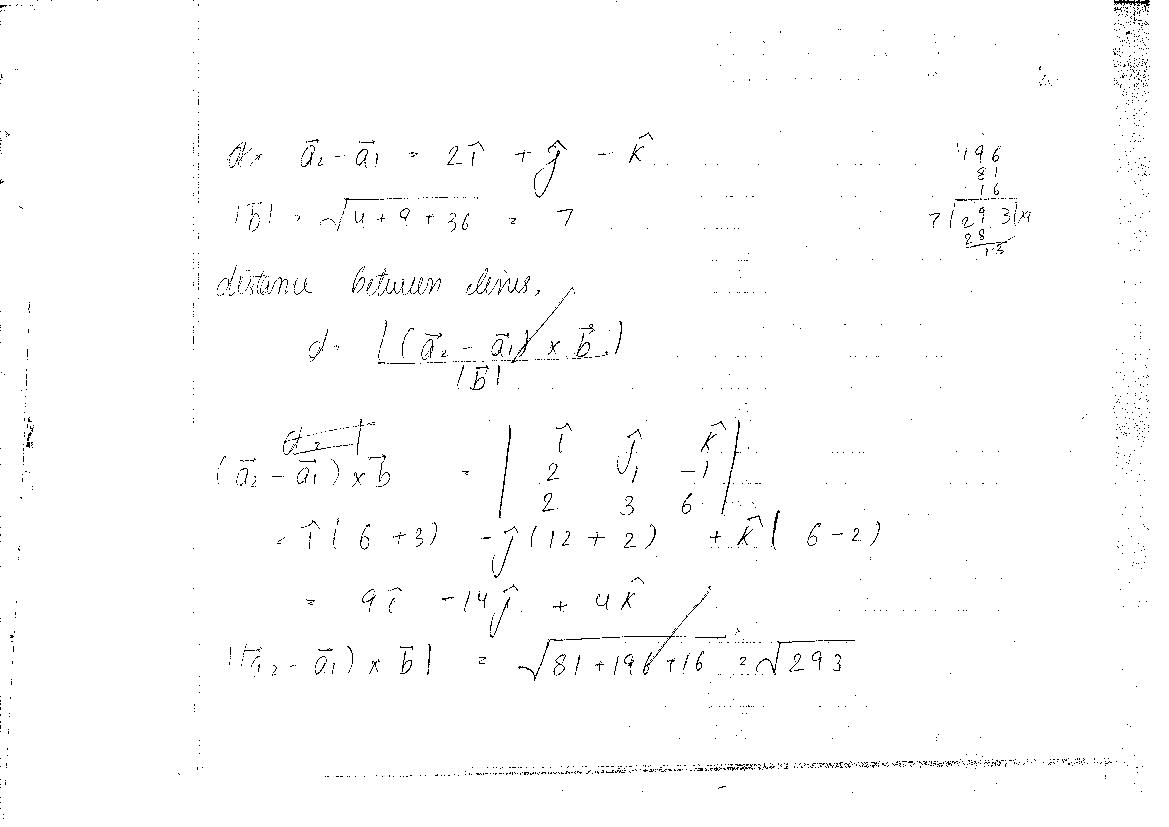 a⃗₂ - a⃗₁ = 2î + ĵ - k̂
|b⃗| = √4 + 9 + 36 = 7
distance between lines,
d = |(a⃗₂ - a⃗₁) × b⃗|
|b⃗|
(a⃗₂ - a⃗₁) × b⃗ = | î ĵ k̂ |
2 1 -1
2 3 6
= î( 6 + 3) - ĵ(12 + 2) + k̂( 6 - 2)
= 9î - 14ĵ + 4k̂
|(a⃗₂ - a⃗₁) × b⃗| = √81 + 196 + 16 = √293
196
81
16
7 | 293 | 4
28
13